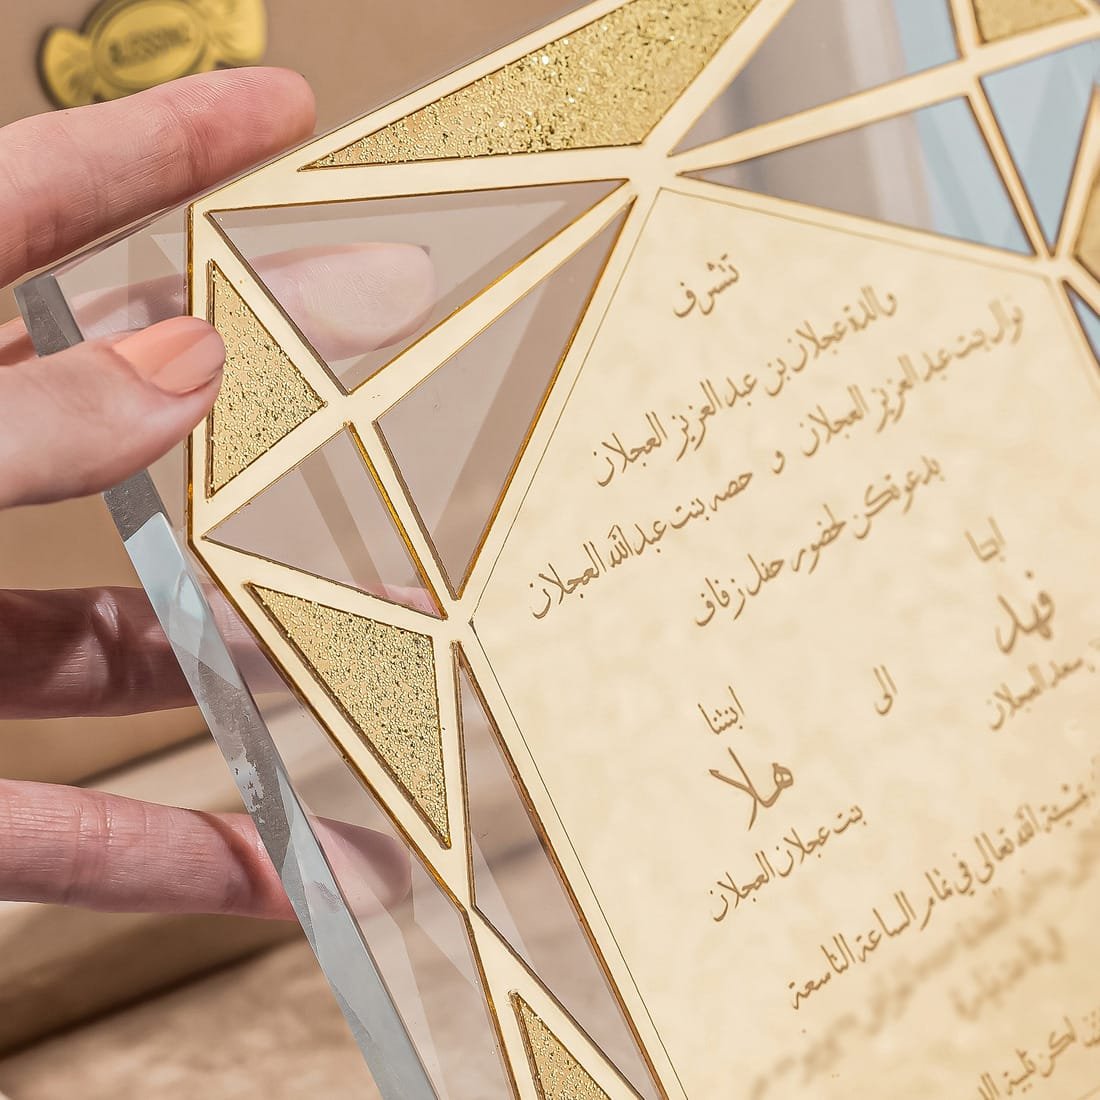 BLESSING
تتشرف
والدة عجلان بن عبد العزيز العجلان
نوال بنت عبد العزيز العجلان و حصه بنت عبدالله العجلان
بدعوتكن لحضور حفل زفاف
ابننا
فهد
سعد العجلان
الى
ابنتنا
هلا
بنت عجلان العجلان
بمشيئة الله تعالى في تمام الساعة التاسعة
لكن تلبية